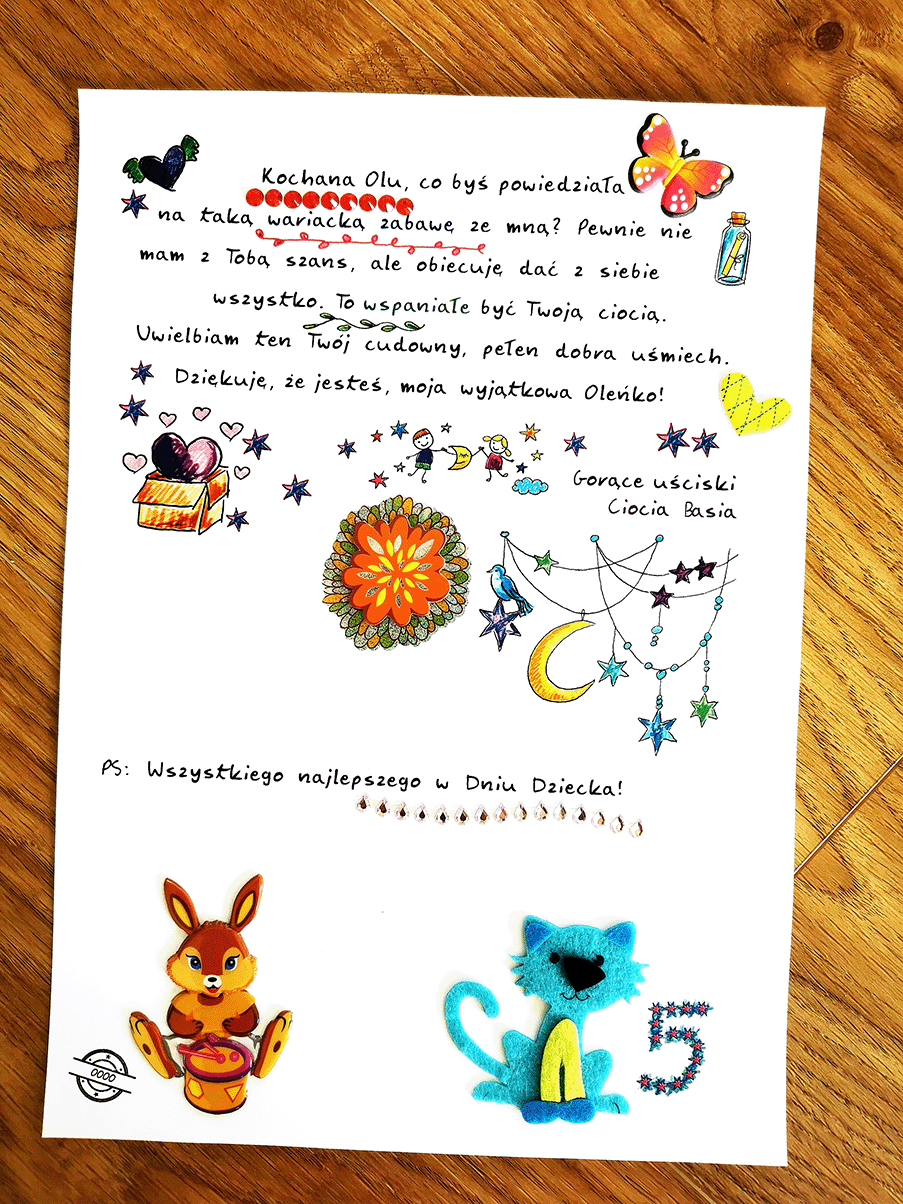 Kochana Olu, co byś powiedziała
na taką wariacką zabawę ze mną? Pewnie nie
mam z Tobą szans, ale obiecuję dać z siebie
wszystko. To wspaniałe być Twoją ciocią.
Uwielbiam ten Twój cudowny, pełen dobra uśmiech.
Dziękuję, że jesteś, moja wyjątkowa Oleńko!
Gorące uściski
Ciocia Basia
PS: Wszystkiego najlepszego w Dniu Dziecka!
0000
5